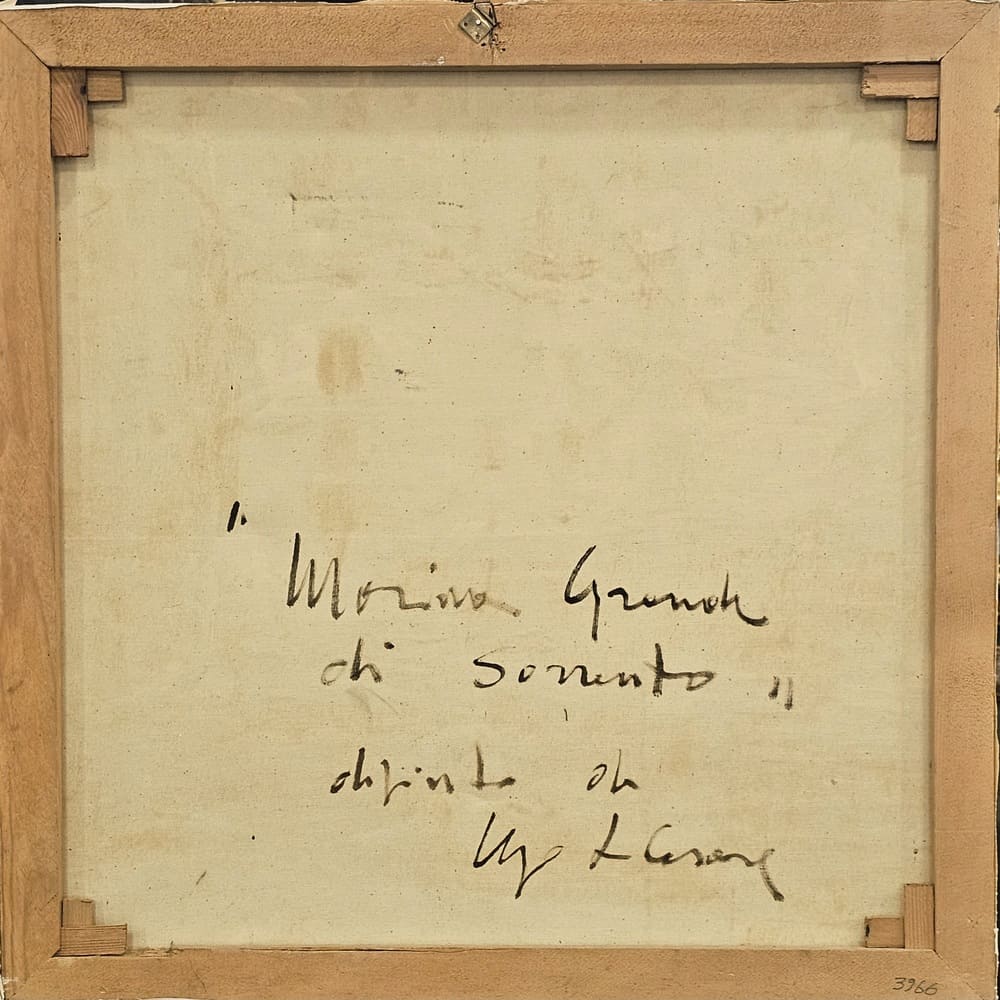 "Marina Grande
di Sorrento"
dipinto di
Ugo di Cesare
3966